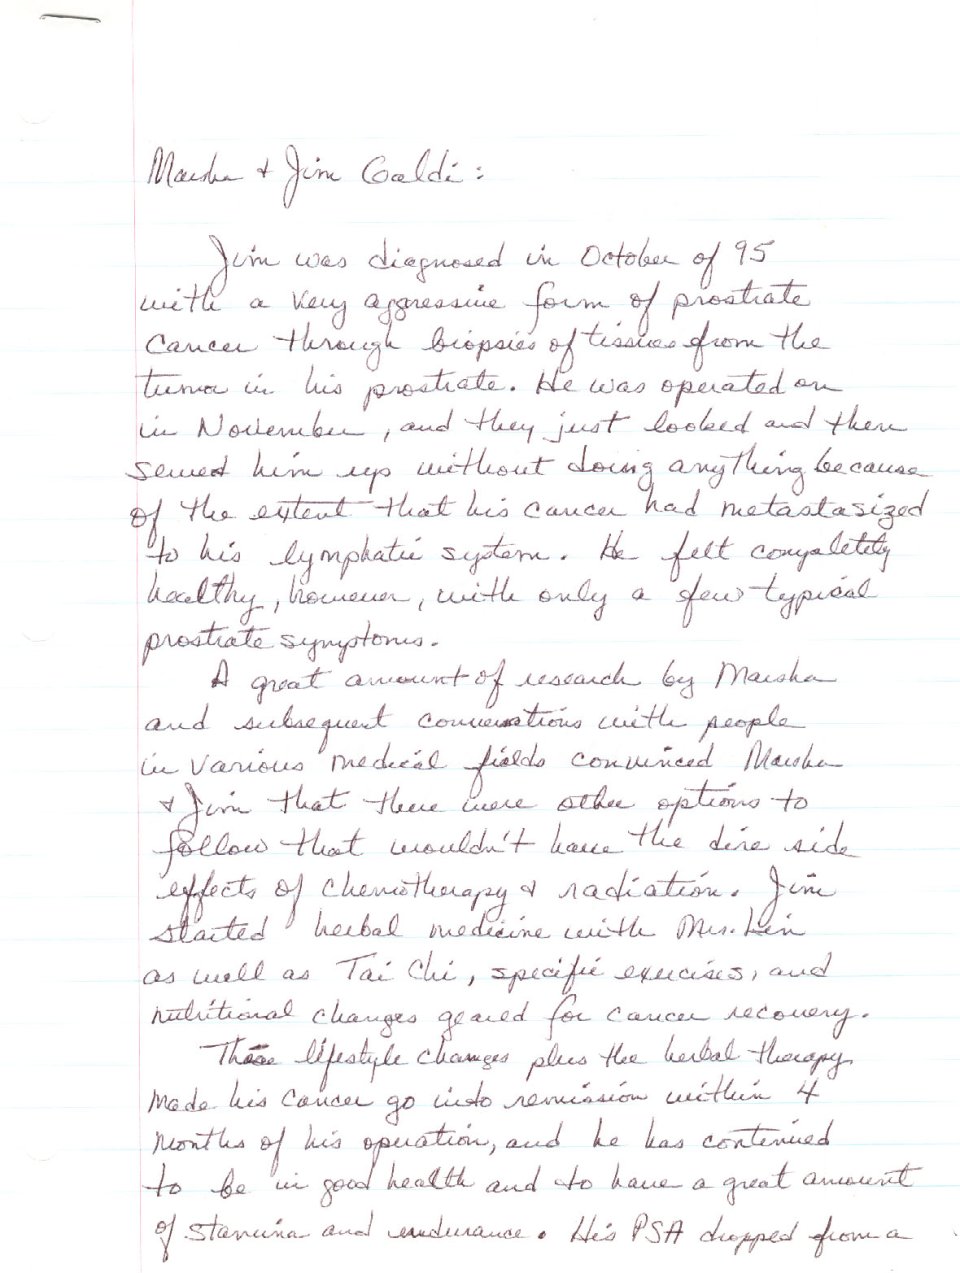 Marsha & Jim Galdi:
Jim was diagnosed in October of 95
with a very aggressive form of prostrate
cancer through biopsies of tissues from the
tumor in his prostrate. He was operated on
in November, and they just looked and then
sewed him up without doing anything because
of the extent that his cancer had metastasized
to his lymphatic system. He felt completely
healthy, however, with only a few typical
prostrate symptoms.
A great amount of research by Marsha
and subsequent conversations with people
in various medical fields convinced Marsha
& Jim that there were other options to
follow that wouldn't have the dire side
effects of chemotherapy & radiation. Jim
started herbal medicine with Mrs. Lin
as well as Tai Chi, specific exercises, and
nutritional changes geared for cancer recovery.
These lifestyle changes plus the herbal therapy
made his cancer go into remission within 4
months of his operation, and he has continued
to be in good health and to have a great amount
of stamina and endurance. His PSA dropped from a